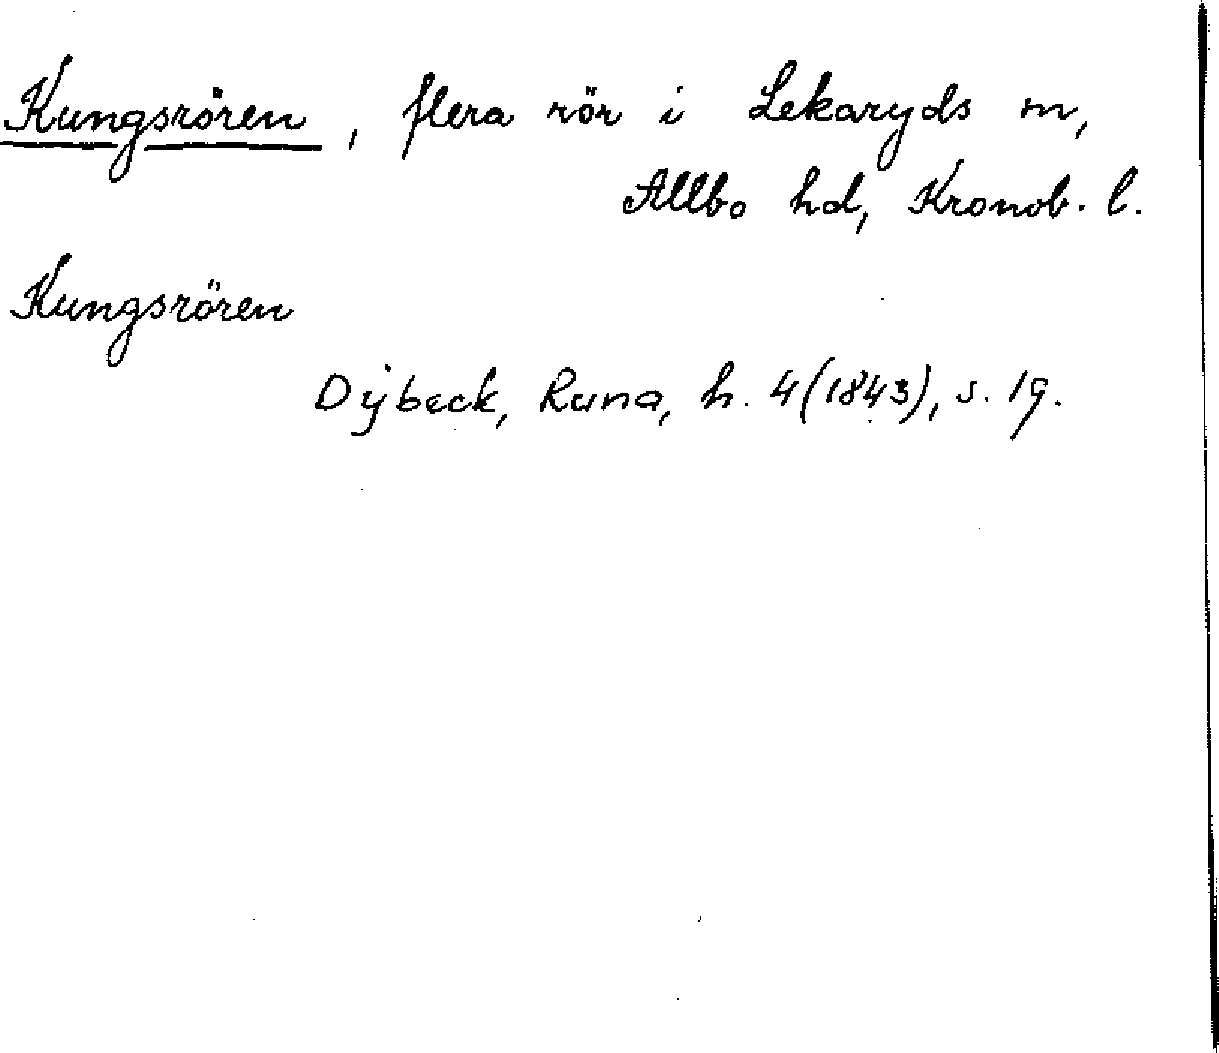 Kungsrören, flera rör i Lekaryds sn,
Allbo hd, Kronob. l.
Kungsrören
Dybeck, Runa, h. 4 (1843), s. 19.